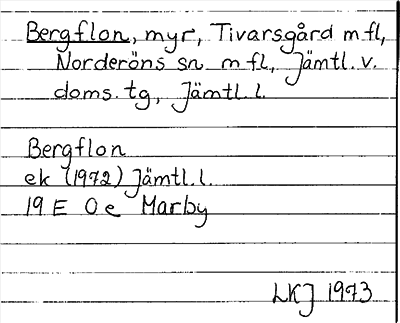 Bergflon, myr, Tivarsgård m fl,
Norderöns sn m fl, Jämtl. v.
doms. tg, Jämtl. l.
Bergflon
ek (1972) Jämtl. l.
19 E 0 e Marby
LKJ 1973